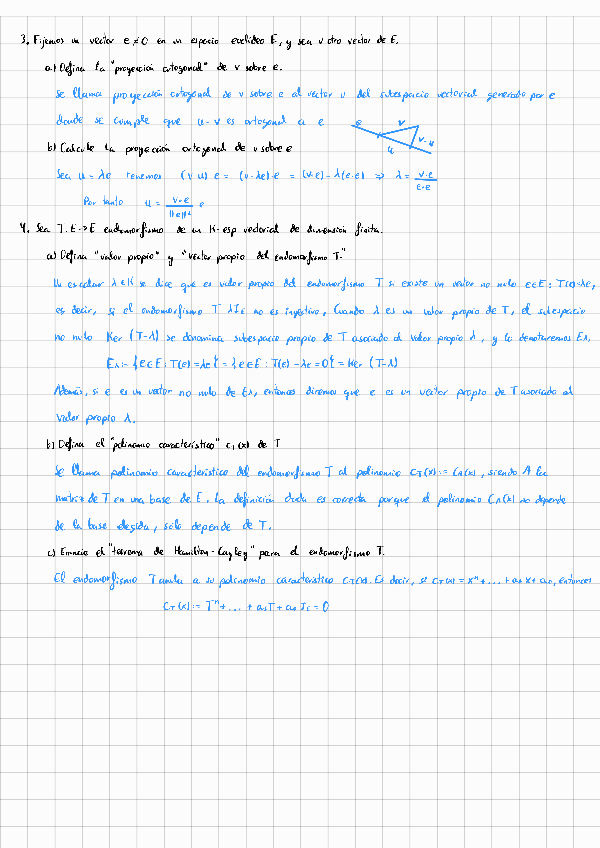 3. Fijemos un vector e ≠ 0 en un espacio euclídeo E, y sea v otro vector de E.
a) Defina la "proyección ortogonal" de v sobre e.
Se llama proyección ortogonal de v sobre e al vector u del subespacio vectorial generado por e
donde se cumple que u - v es ortogonal a e
e v v-u u
b) Calcule la proyección ortogonal de v sobre e
Sea u = λe tenemos (v u) e = (v-λe)·e = (v·e) - λ(e·e) ⇒ λ = v·e / e·e
Por tanto u = v·e / ||e||² e
4. Sea T: E → E endomorfismo de un K-esp vectorial de dimensión finita.
a) Defina "valor propio" y "vector propio del endomorfismo T."
Un escalar λ ∈ K se dice que es valor propio del endomorfismo T si existe un vector no nulo e∈E: T(e)=λe,
es decir, si el endomorfismo T λI_E no es inyectivo. Cuando λ es un valor propio de T, el subespacio
no nulo Ker (T-λ) se denomina subespacio propio de T asociado al valor propio λ, y lo denotaremos Eλ
Eλ:= {e∈E: T(e) = λe} = {e∈E: T(e) - λe = 0} = Ker (T-λ)
Además, si e es un vector no nulo de Eλ, entonces diremos que e es un vector propio de T asociado al
valor propio λ.
b) Defina el "polinomio característico" c_T(x) de T
Se llama polinomio característico del endomorfismo T al polinomio C_T(x) := C_A(x), siendo A la
matriz de T en una base de E. La definición dada es correcta porque el polinomio C_A(x) no depende
de la base elegida, sólo depende de T.
c) Enuncie el "teorema de Hamilton-Cayley" para el endomorfismo T.
El endomorfismo T anula a su polinomio característico C_T(x). Es decir, si C_T(x) = xⁿ + ... + a₁x + a₀, entonces
C_T(x) := Tⁿ + ... + a₁T + a₀ I_E = 0